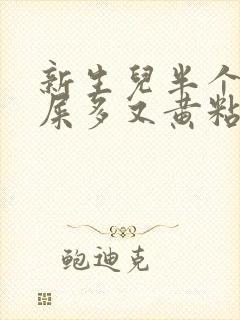 新生兒半个
屎多又黄粘
鲍迪克